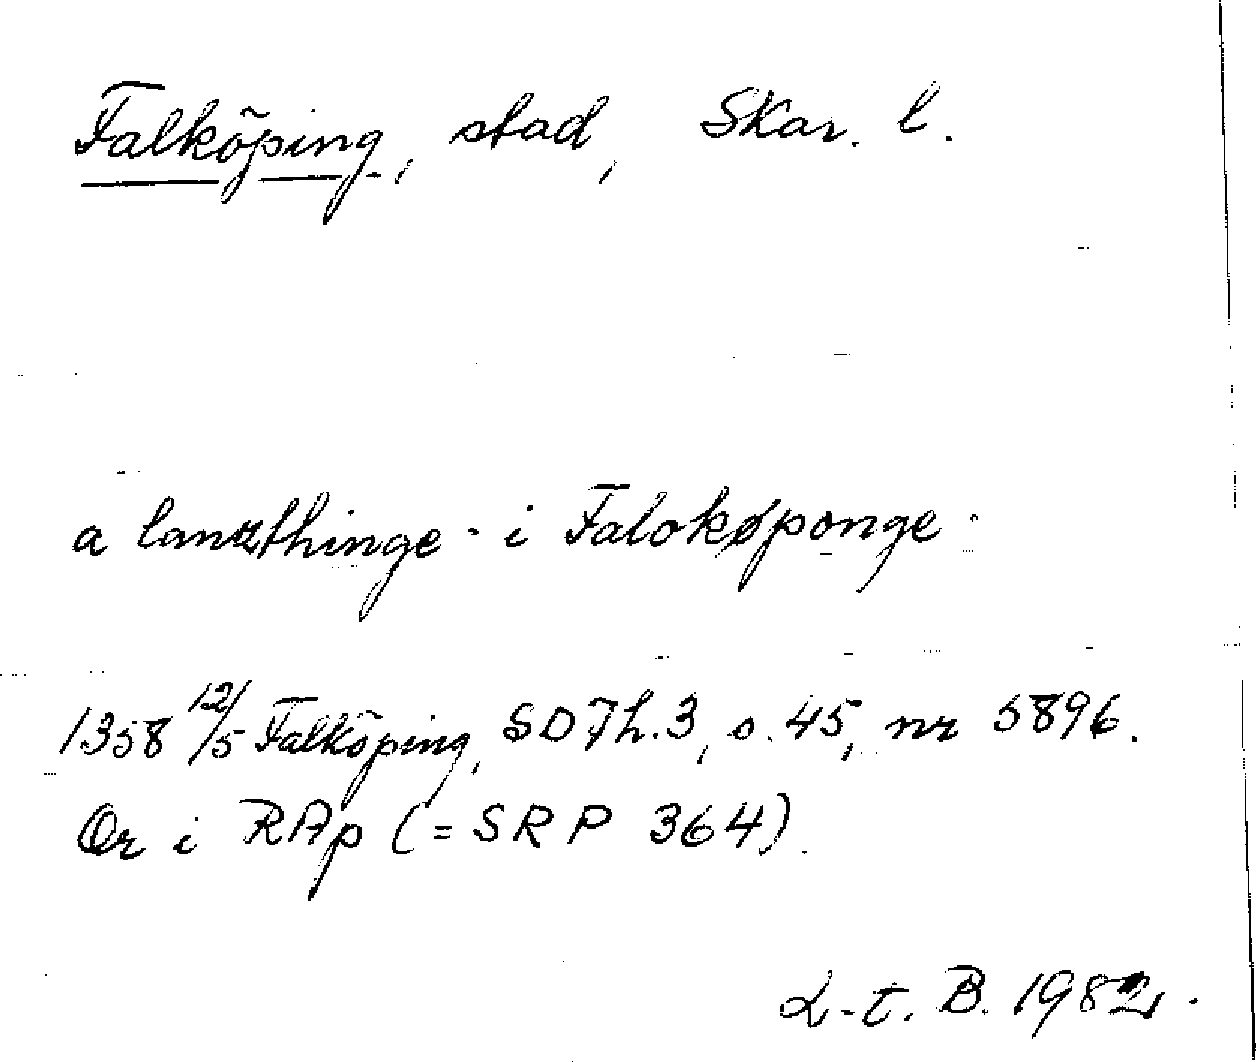 Falköping, stad, Skar. l.
a lanzthinge i Faloköponge
1358 12/5 Falköping, SD 7 h. 3, s. 45, nr 5896.
Or i RAp (= SRP 364).
L-t. B. 1982.